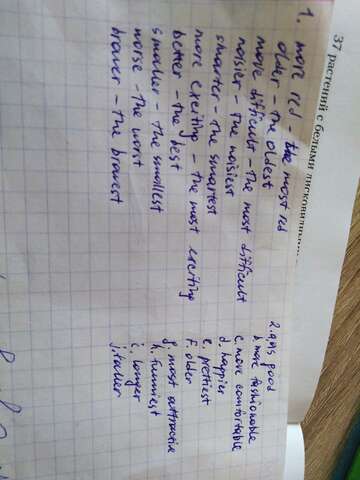 37 растений с белыми
1. more red - the most red
older - the oldest
more difficult - the most difficult
noisier - the noisiest
smarter - the smartest
more exciting - the most exciting
better - the best
smaller - the smallest
worse - the worst
braver - the bravest
2. a as good
b. more fashionable
c. more comfortable
d. happier
e. prettiest
F. older
g. most attractive
h. funniest
i. longer
j. taller